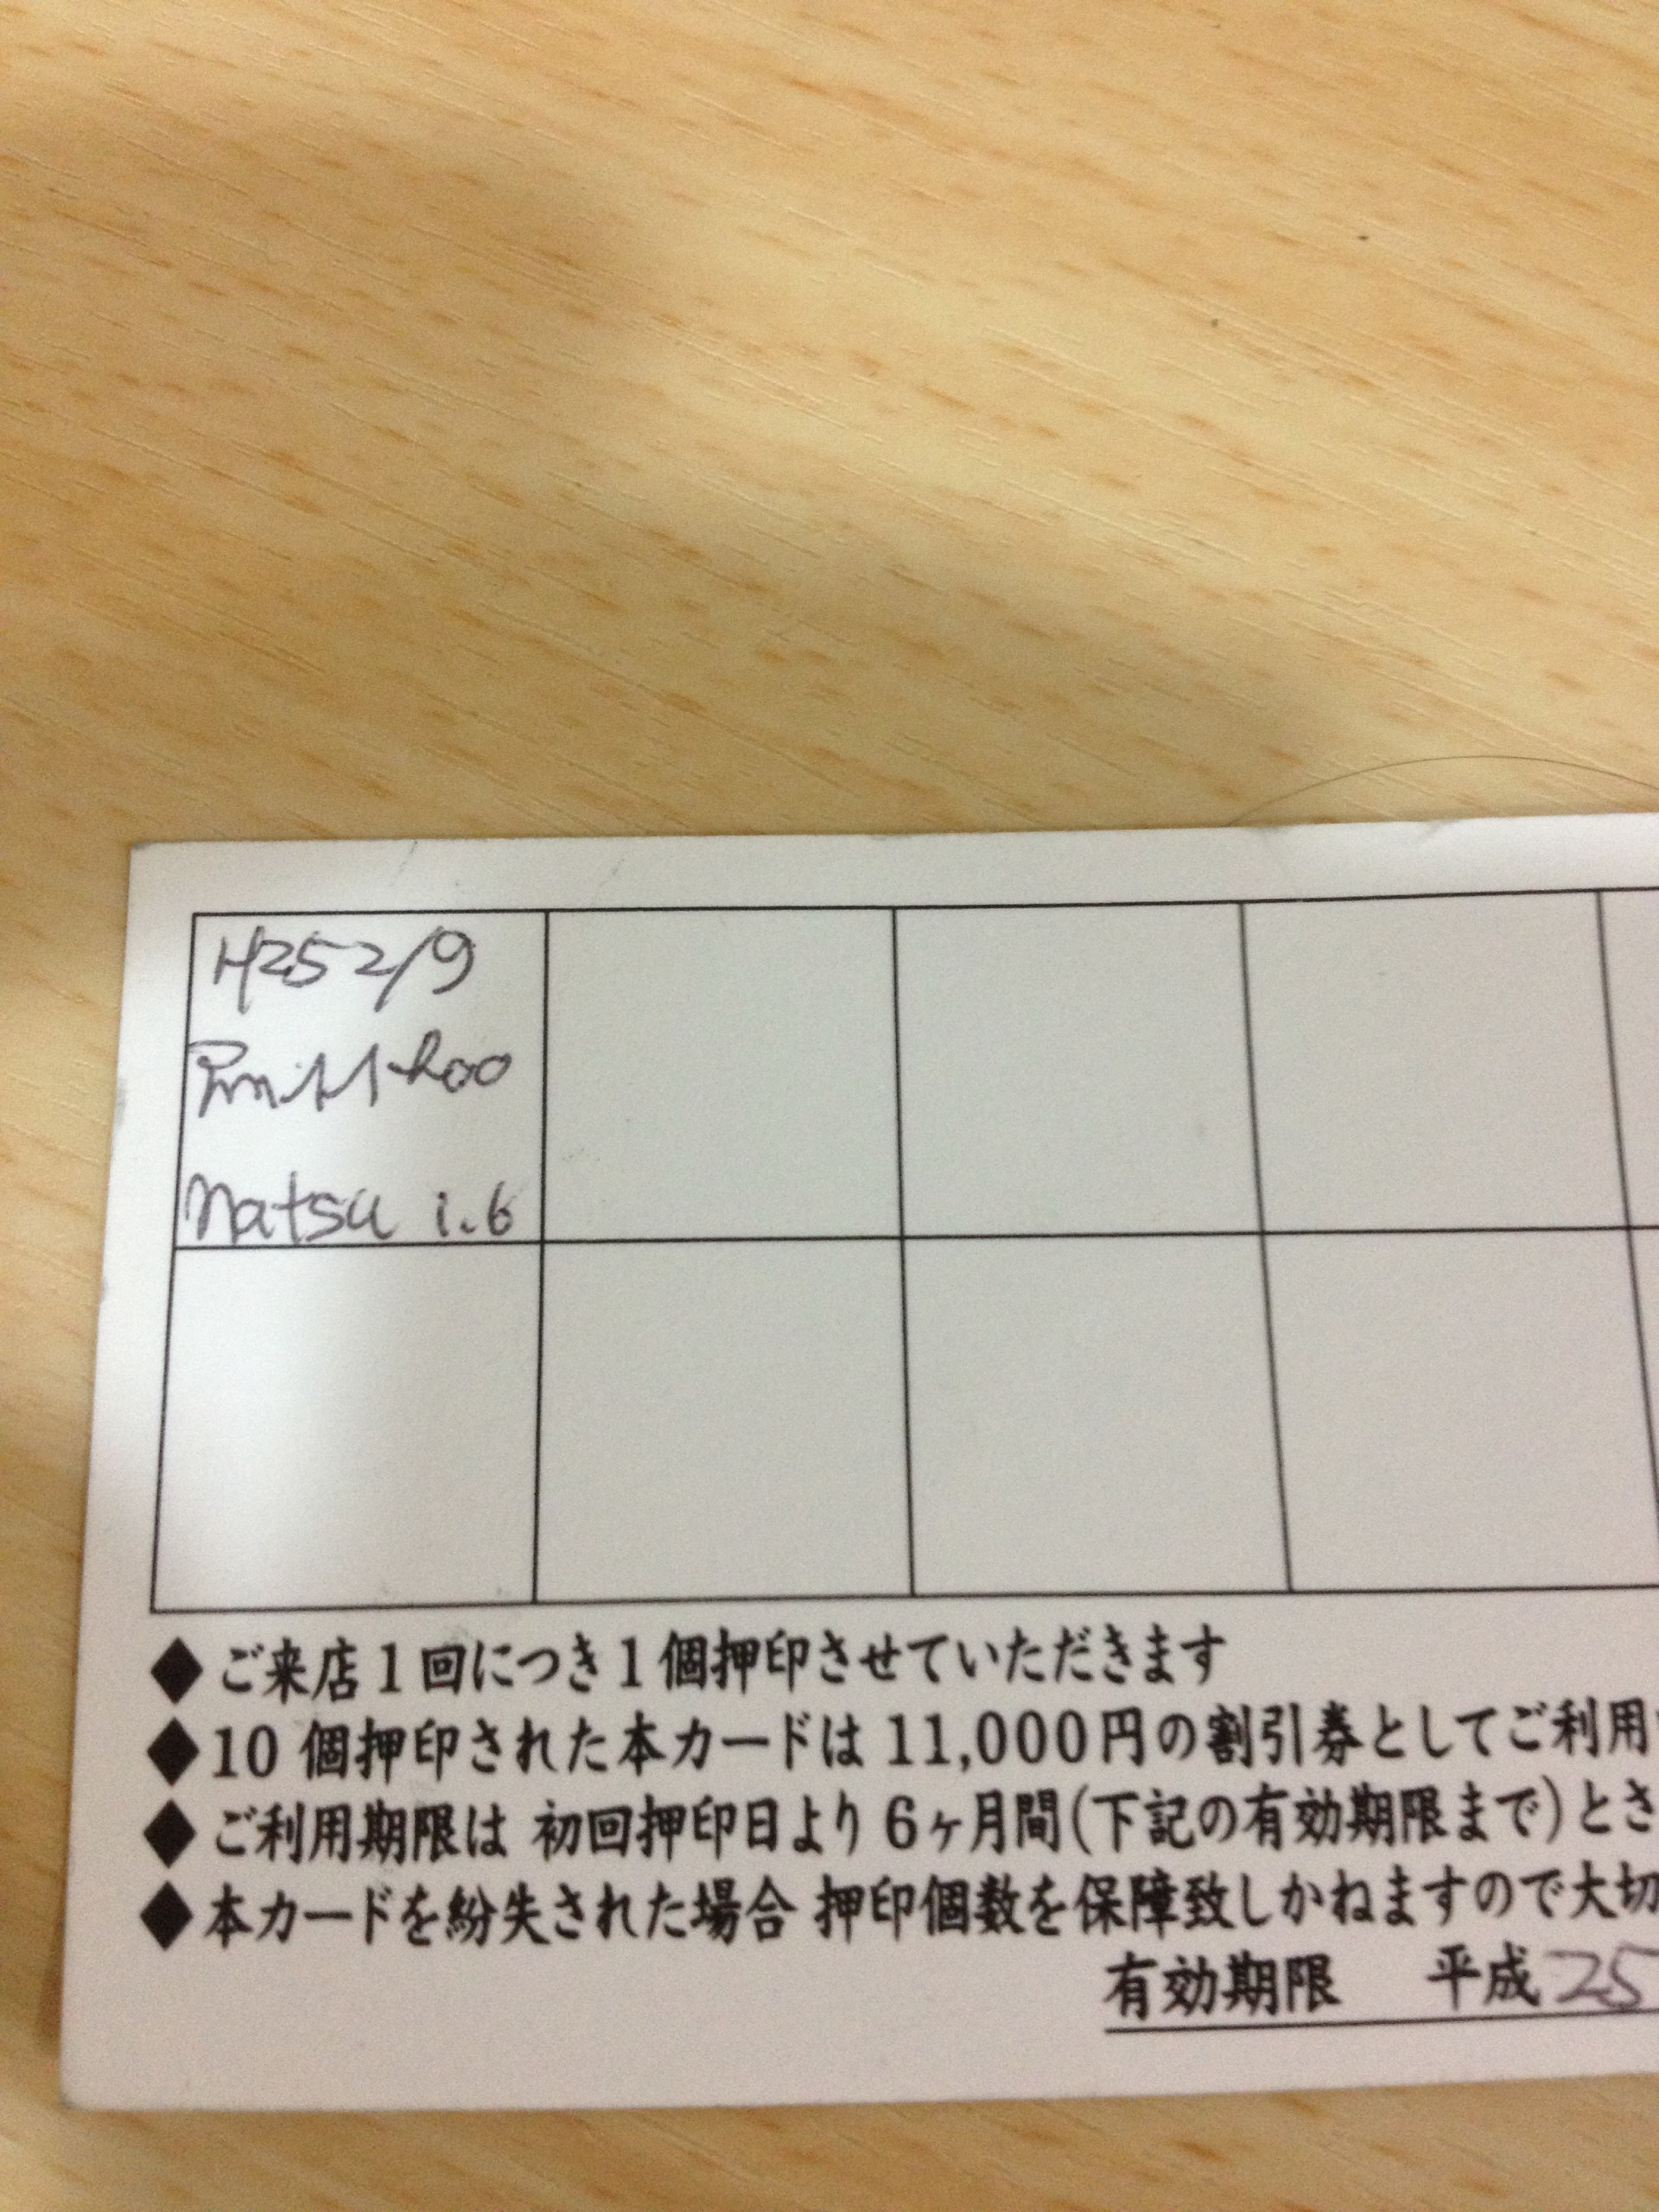 H25 2/9
Natsu i.6
◆ご来店1回につき1個押印させていただきます
◆10 個押印された本カードは 11,000円の割引券としてご利用
◆ご利用期限は 初回押印日より 6ヶ月間(下記の有効期限まで)とさ
◆本カードを紛失された場合 押印個数を保障致しかねますので大切
有効期限 平成 25